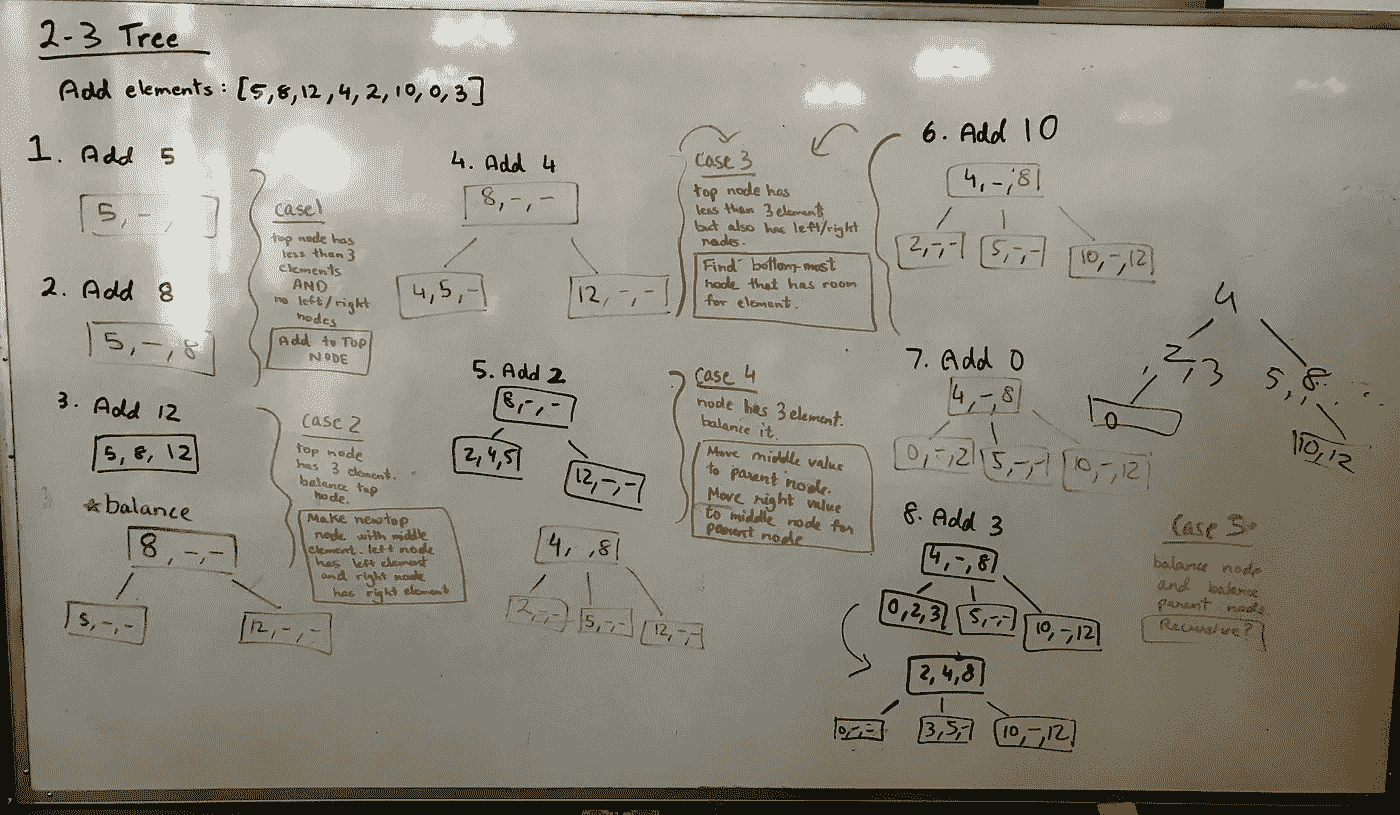 2-3 Tree
Add elements: [5,8,12,4,2,10,0,3]
1. Add 5
5, -
2. Add 8
5, -, 8
3. Add 12
5, 8, 12
*balance
8, -, -
5, -, -
12, -, -
Case 1
top node has
less than 3
elements
AND
no left/right
nodes
Add to Top
NODE
Case 2
top node
has 3 element.
balance top
node.
Make new top
node with middle
element. left node
has left element
and right node
has right element
4. Add 4
8, -, -
4, 5, -
12, -, -
5. Add 2
8, -, -
2, 4, 5
12, -, -
4, , 8
2, -, -
5, -, -
12, -, -
Case 3
top node has
less than 3 element
but also has left/right
nodes.
Find bottom-most
node that has room
for element.
Case 4
node has 3 element.
balance it.
Move middle value
to parent node.
Move right value
to middle node for
parent node
6. Add 10
4, -, 8
2, -, -
5, -, -
10, -, 12
7. Add 0
4, -, 8
0, -, 2
5, -, -
10, -, 12
8. Add 3
4, -, 8
0, 2, 3
5, -, -
10, -, 12
2, 4, 8
0, -, -
3, 5, -
10, -, 12
4
2, 3
5, 8
0
10, 12
Case 5
balance node
and balance
parent node
Recursive?